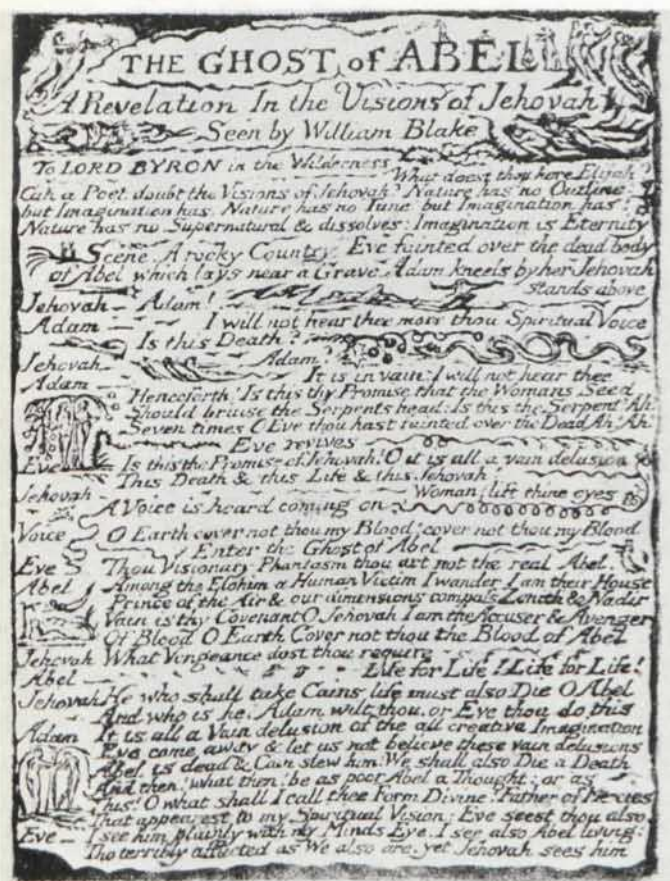 THE GHOST of ABEL
A Revelation In the Visions of Jehovah
Seen by William Blake
To LORD BYRON in the Wilderness
What doest thou here Elijah?
Can a Poet doubt the Visions of Jehovah? Nature has no Outline:
but Imagination has. Nature has no Tune: but Imagination has!
Nature has no Supernatural & dissolves: Imagination is Eternity
Scene. A rocky Country. Eve fainted over the dead body
of Abel which lays near a Grave. Adam kneels by her Jehovah
stands above
Jehovah — Adam!
Adam — I will not hear thee more thou Spiritual Voice
Is this Death?
Jehovah — Adam!
Adam — It is in vain: I will not hear thee
Henceforth! Is this thy Promise that the Womans Seed
Should bruise the Serpents head: Is this the Serpent? Ah!
Seven times O Eve thou hast fainted over the Dead Ah! Ah!
Eve revives
Eve — Is this the Promise of Jehovah! O it is all a vain delusion
This Death & this Life & this Jehovah
Jehovah — Woman! lift thine eyes
A Voice is heard coming on
Voice O Earth cover not thou my Blood! cover not thou my Blood
Enter the Ghost of Abel
Eve Thou Visionary Phantasm thou art not the real Abel.
Abel Among the Elohim a Human Victim I wander I am their House
Prince of the Air & our dimensions compass Zenith & Nadir
Vain is thy Covenant O Jehovah I am the Accuser & Avenger
Of Blood O Earth Cover not thou the Blood of Abel
Jehovah What Vengeance dost thou require
Abel — Life for Life! Life for Life!
Jehovah He who shall take Cains life must also Die O Abel
And who is he. Adam wilt thou, or Eve thou do this
Adam It is all a Vain delusion of the all creative Imagination
Eve come away & let us not believe these vain delusions
Abel is dead & Cain slew him! We shall also Die a Death
And then! what then! be as poor Abel a Thought: or as
This! O what shall I call thee Form Divine! Father of Mercies
That appearest to my Spiritual Vision: Eve seest thou also
Eve — I see him plainly with my Minds Eye. I see also Abel living:
Tho terribly afflicted as We also are. yet Jehovah sees him